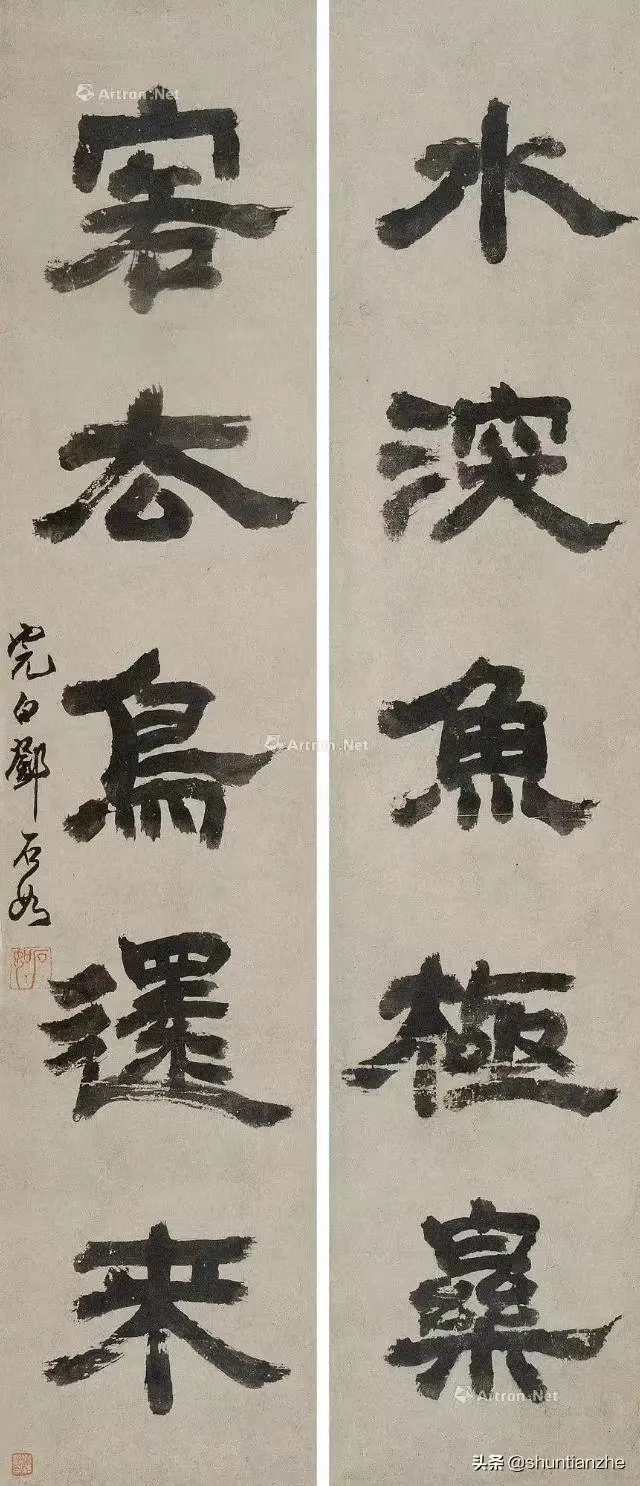 水深魚極樂
客去鳥還來
完白鄧石如
Artron.Net
Artron.Net
Artron.Net
头条 @shuntianzhe